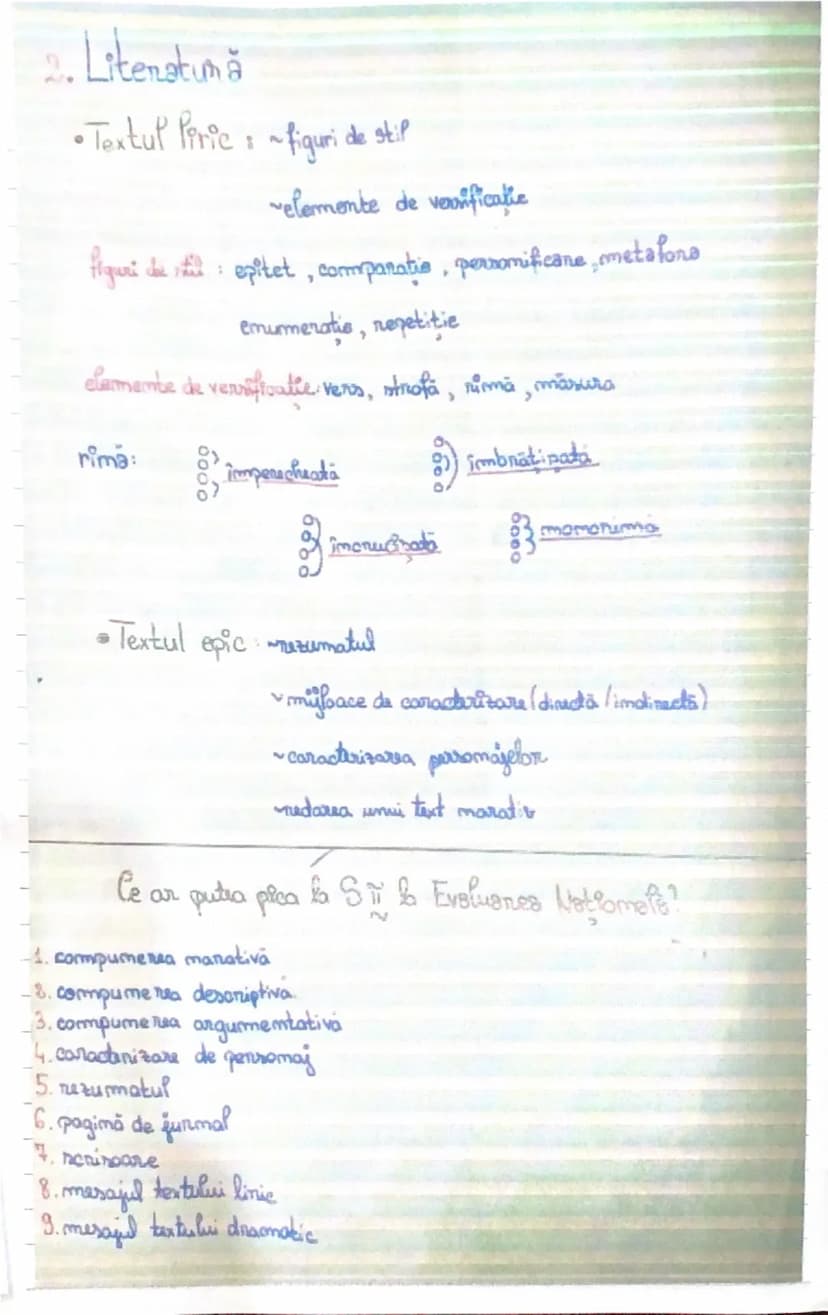 2. Literatură
• Textul liric : ~ figuri de stil
~ elemente de versificație
figuri de stil : epitet , comparație , personificare , metafora
enumerație , repetiție
elemente de versificație: vers, strofă , rimă , măsura
rimă: împerecheată îmbrățișată
încrucișată monorimă
• Textul epic : ~ rezumatul
~ mijloace de caracterizare (directă / indirectă)
~ caracterizarea personajelor
~ redarea unui text narativ
Ce ar putea pica la S II la Evaluarea Națională?
1. compunerea narativă
2. compunerea descriptivă
3. compunerea argumentativă
4. caracterizare de personaj
5. rezumatul
6. pagină de jurnal
7. scrisoare
8. mesajul textului liric
9. mesajul textului dramatic